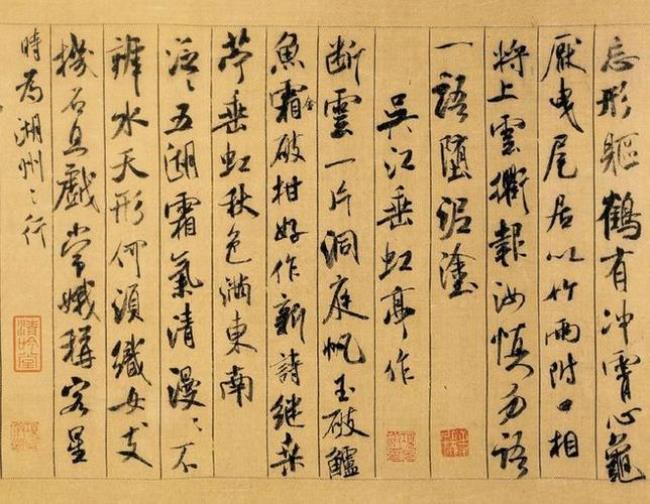 忘形軀鶴有冲霄心龜
厭曳尾居以竹兩附口相
將上雲衢報汝慎勿語
一語墮泥塗
吳江垂虹亭作
断雲一片洞庭帆玉破鱸
魚霜金破柑好作新詩継桑
苧垂虹秋色滿東南
泛〻五湖霜氣清漫〻不
辨水天形何湏織女支
機石且戲常娥稱客星
時為湖州之行
清吟堂